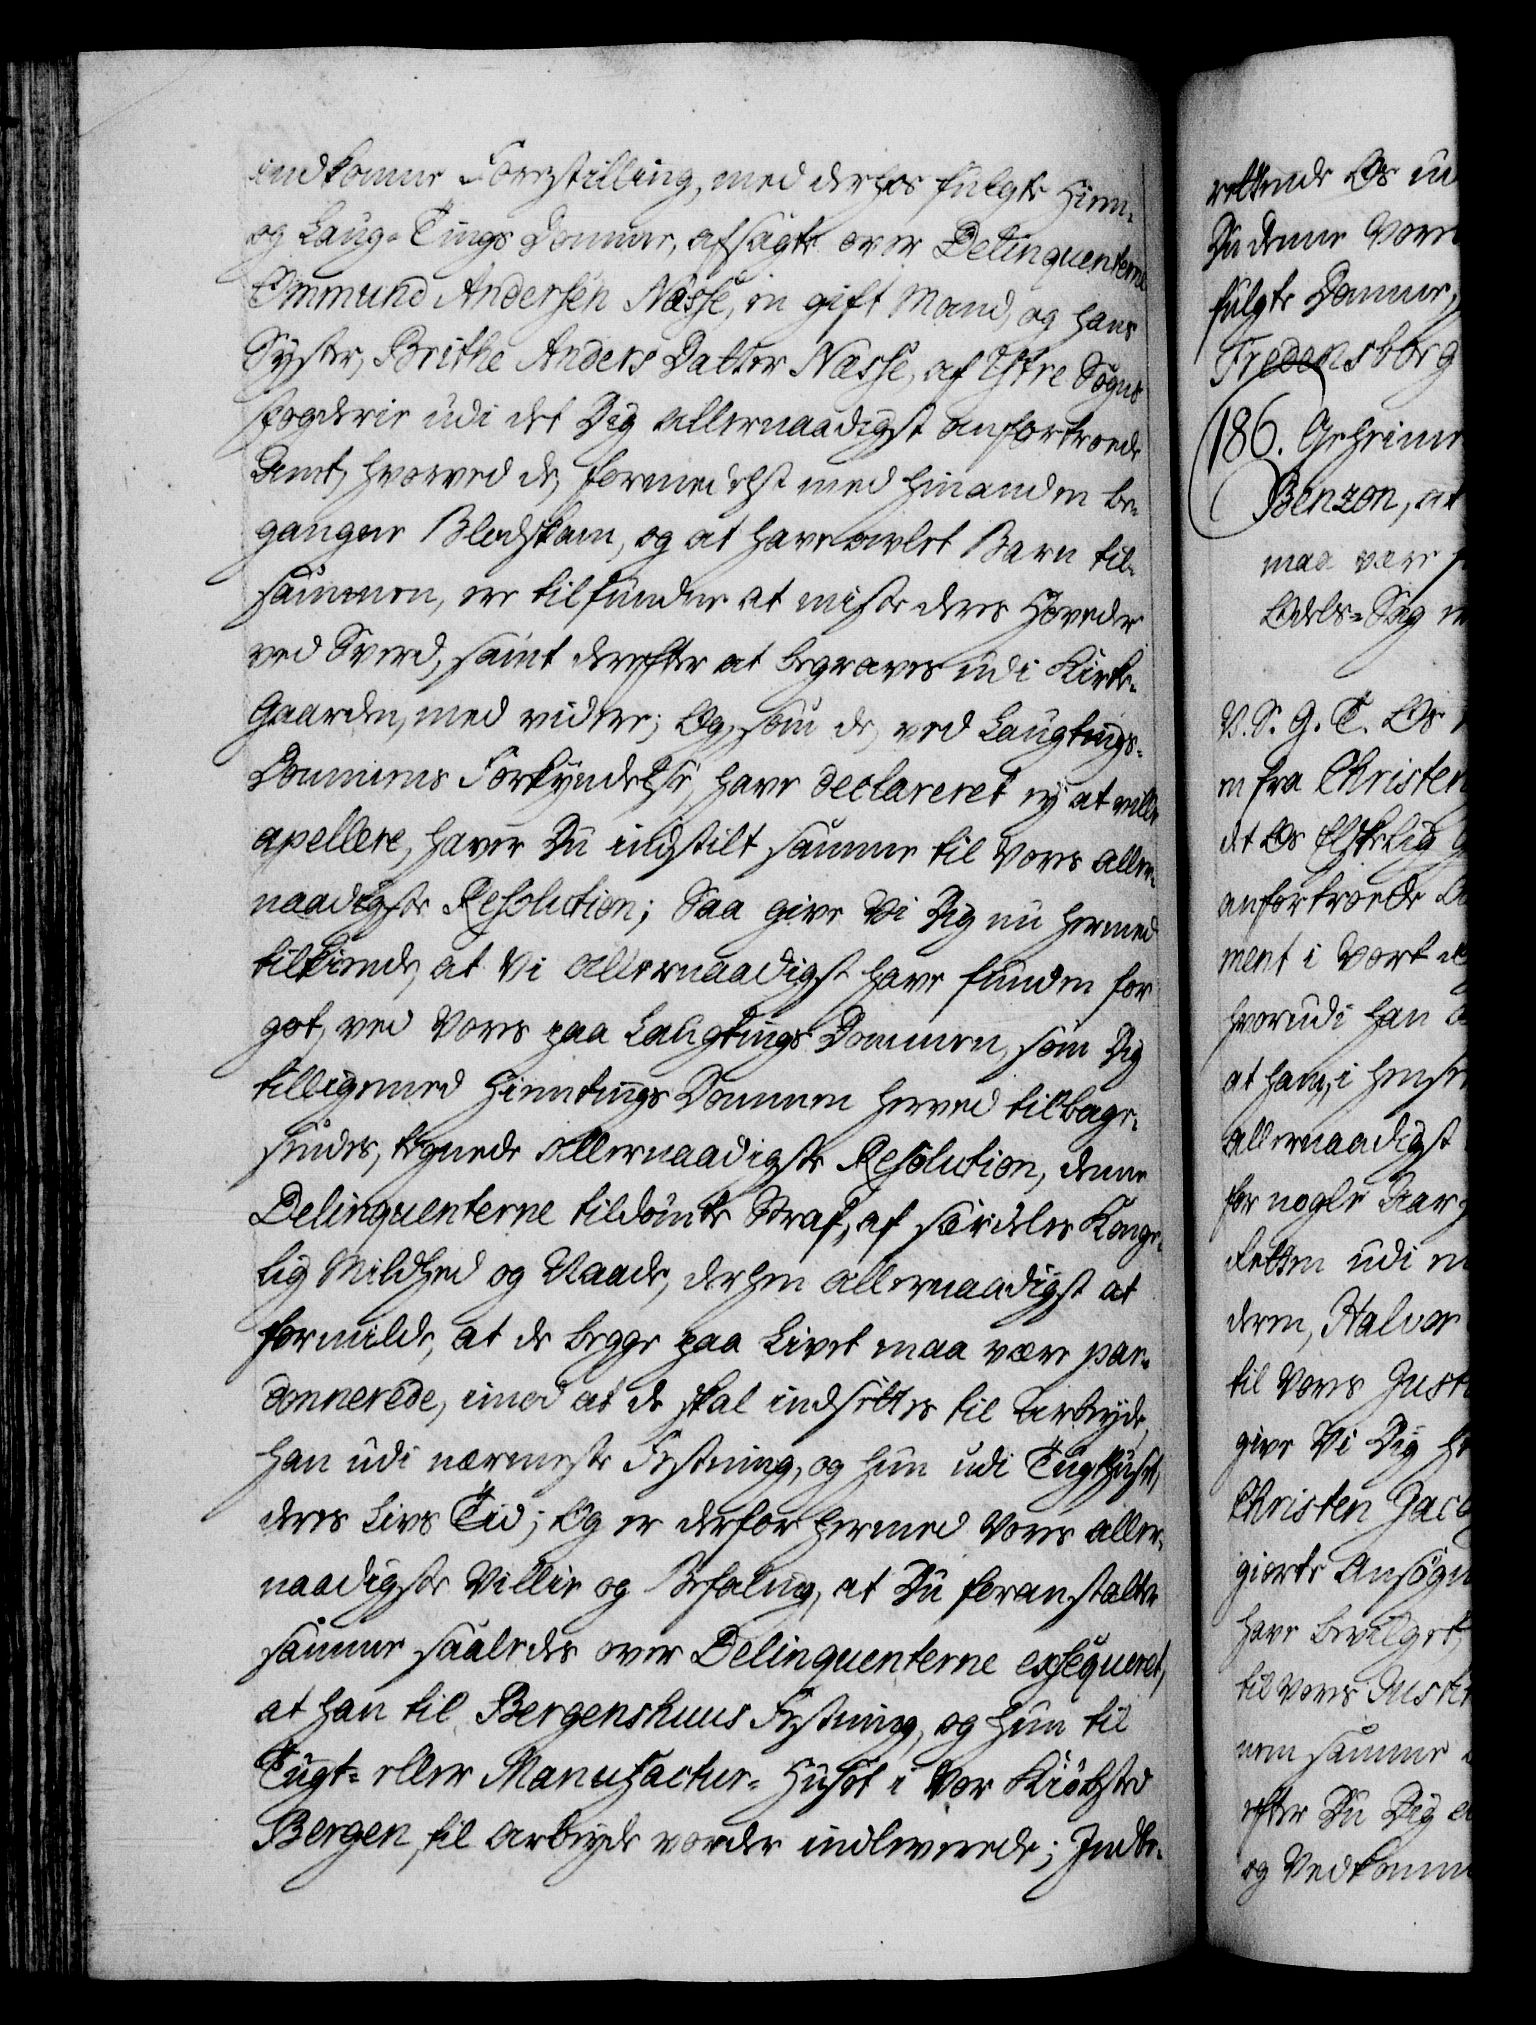 indkomne Forestilling, med derhos fulgte Hiem-
og Laug-Tings Domme, afsagte over Delinquenterne
Ommund Andersen Næsse, en gift Mand, og hans
Syster, Brithe Anders Datter Næsse, af Systre Sogns
fogderie udi det Dig allernaadigst anfortroede
Amt, hvorved de, formedelst med hinanden be-
gangne Blodskam, og at have avlet Barn til-
sammen, ere tilfundne at miste deres Hoveder
ved Sverd, samt derefter at begraves udi Kirke-
Gaarden, med videre; Og, som de, ved Laugtings-
Dommens Forkyndelse, have declareret ey at ville
apellere, haver Du indstilt samme til Vores aller-
naadigste Resolution; Saa give Vi Dig nu hermed
tilkiende, at Vi allernaadigst have funden for
got, ved Vores paa Laugtings Dommen, som Dig
tilligemed Hiemtings Dommen herved tilbage-
sendes, tegnede allernaadigste Resolution, denne
Delinquenterne tildømte Straf, af særdeles Konge-
lig Mildhed og Naade, derhen allernaadigst at
formilde, at de begge paa Livet maa være par-
donnerede, imod at de skal indsettes til Arbeyde,
han udi nærmeste Festning, og hun udi Tugthuset,
deres Livs Tid; Og er derfor hermed Vores aller-
naadigste Villie og Befaling, at Du foranstalter
samme saaledes over Delinquenterne exseqveret,
at han til Bergenshuus Festning, og hun til
Tugt- eller Manufactur-Huset i Vor Kiøbsted
Bergen, til Arbeyde vorder indleverede; Indbe-
rettende Os
Du denne Vores
fulgte Domme,
Fredensborg
186. Geheime
Benzon, at
maa være
Odels-Sag
V. S. G. T. Os
en fra Christen
det Os Elskelig
anfortroede
ment i Vort
hvorudi han
at ham, i henseende
allernaadigst
for nogle Aar
Retten udi
deren, Halvor
til Vores Justi
give Vi Dig
Christen Jacob
giorte Ansøgn
have bevilget,
til Vores Justi
nem samme
efter Du Dig
og Vedkomm